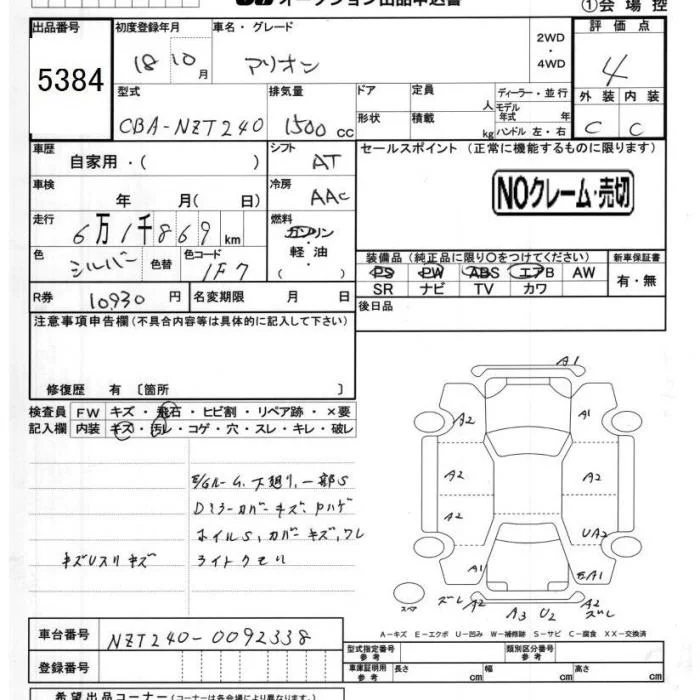 オークション出品申込書
①会場控
出品番号
5384
初度登録年月
18 10月
車名・グレード
アリオン
2WD
・
4WD
評価点
4
外装 内装
C C
型式
CBA-NZT240
排気量
1500 cc
ドア
定員
人
形状
積載
kg
ディーラー・並行
モデル年式 年
ハンドル 左・右
車歴
自家用・( )
シフト
AT
セールスポイント (正常に機能するものに限ります)
NOクレーム・売切
車検
年 月( 日)
冷房
AAC
走行
6万1千869km
燃料
ガソリン
軽油
( ・ )
色
シルバー
色替
色コード
1F7
装備品 (純正品に限り○をつけてください)
PS PW ABS エアB AW
SR ナビ TV カワ
新車保証書
有・無
R券
10930円
名変期限 月 日
後日品
注意事項申告欄 (不具合内容等は具体的に記入して下さい)
修復歴 有 〔箇所 〕
検査員
記入欄
FW キズ・飛石・ヒビ割・リペア跡・×要
内装 キズ・汚レ・コゲ・穴・スレ・キレ・破レ
E/Gルーム、下廻リ、一部S
Dミラーカバーキズ、Pハゲ
ホイルS、カバーキズ、ワレ
ライトクモリ
キズUスリキズ
A1
A2 A1
A2 A2
A2
UA2
A1 EA1
スペア
ズレ A2 A3 U2 A2 ズレ
A-キズ E-エクボ U-凹み W-補修跡 S-サビ C-腐食 XX-交換済
車台番号
NZT240-0092338
登録番号
型式指定番号
参考
類別区分番号
参考
車庫証明用
参考
長さ cm
幅 cm
高さ cm
希望出品コーナー (コーナー名は各会場により異なります)